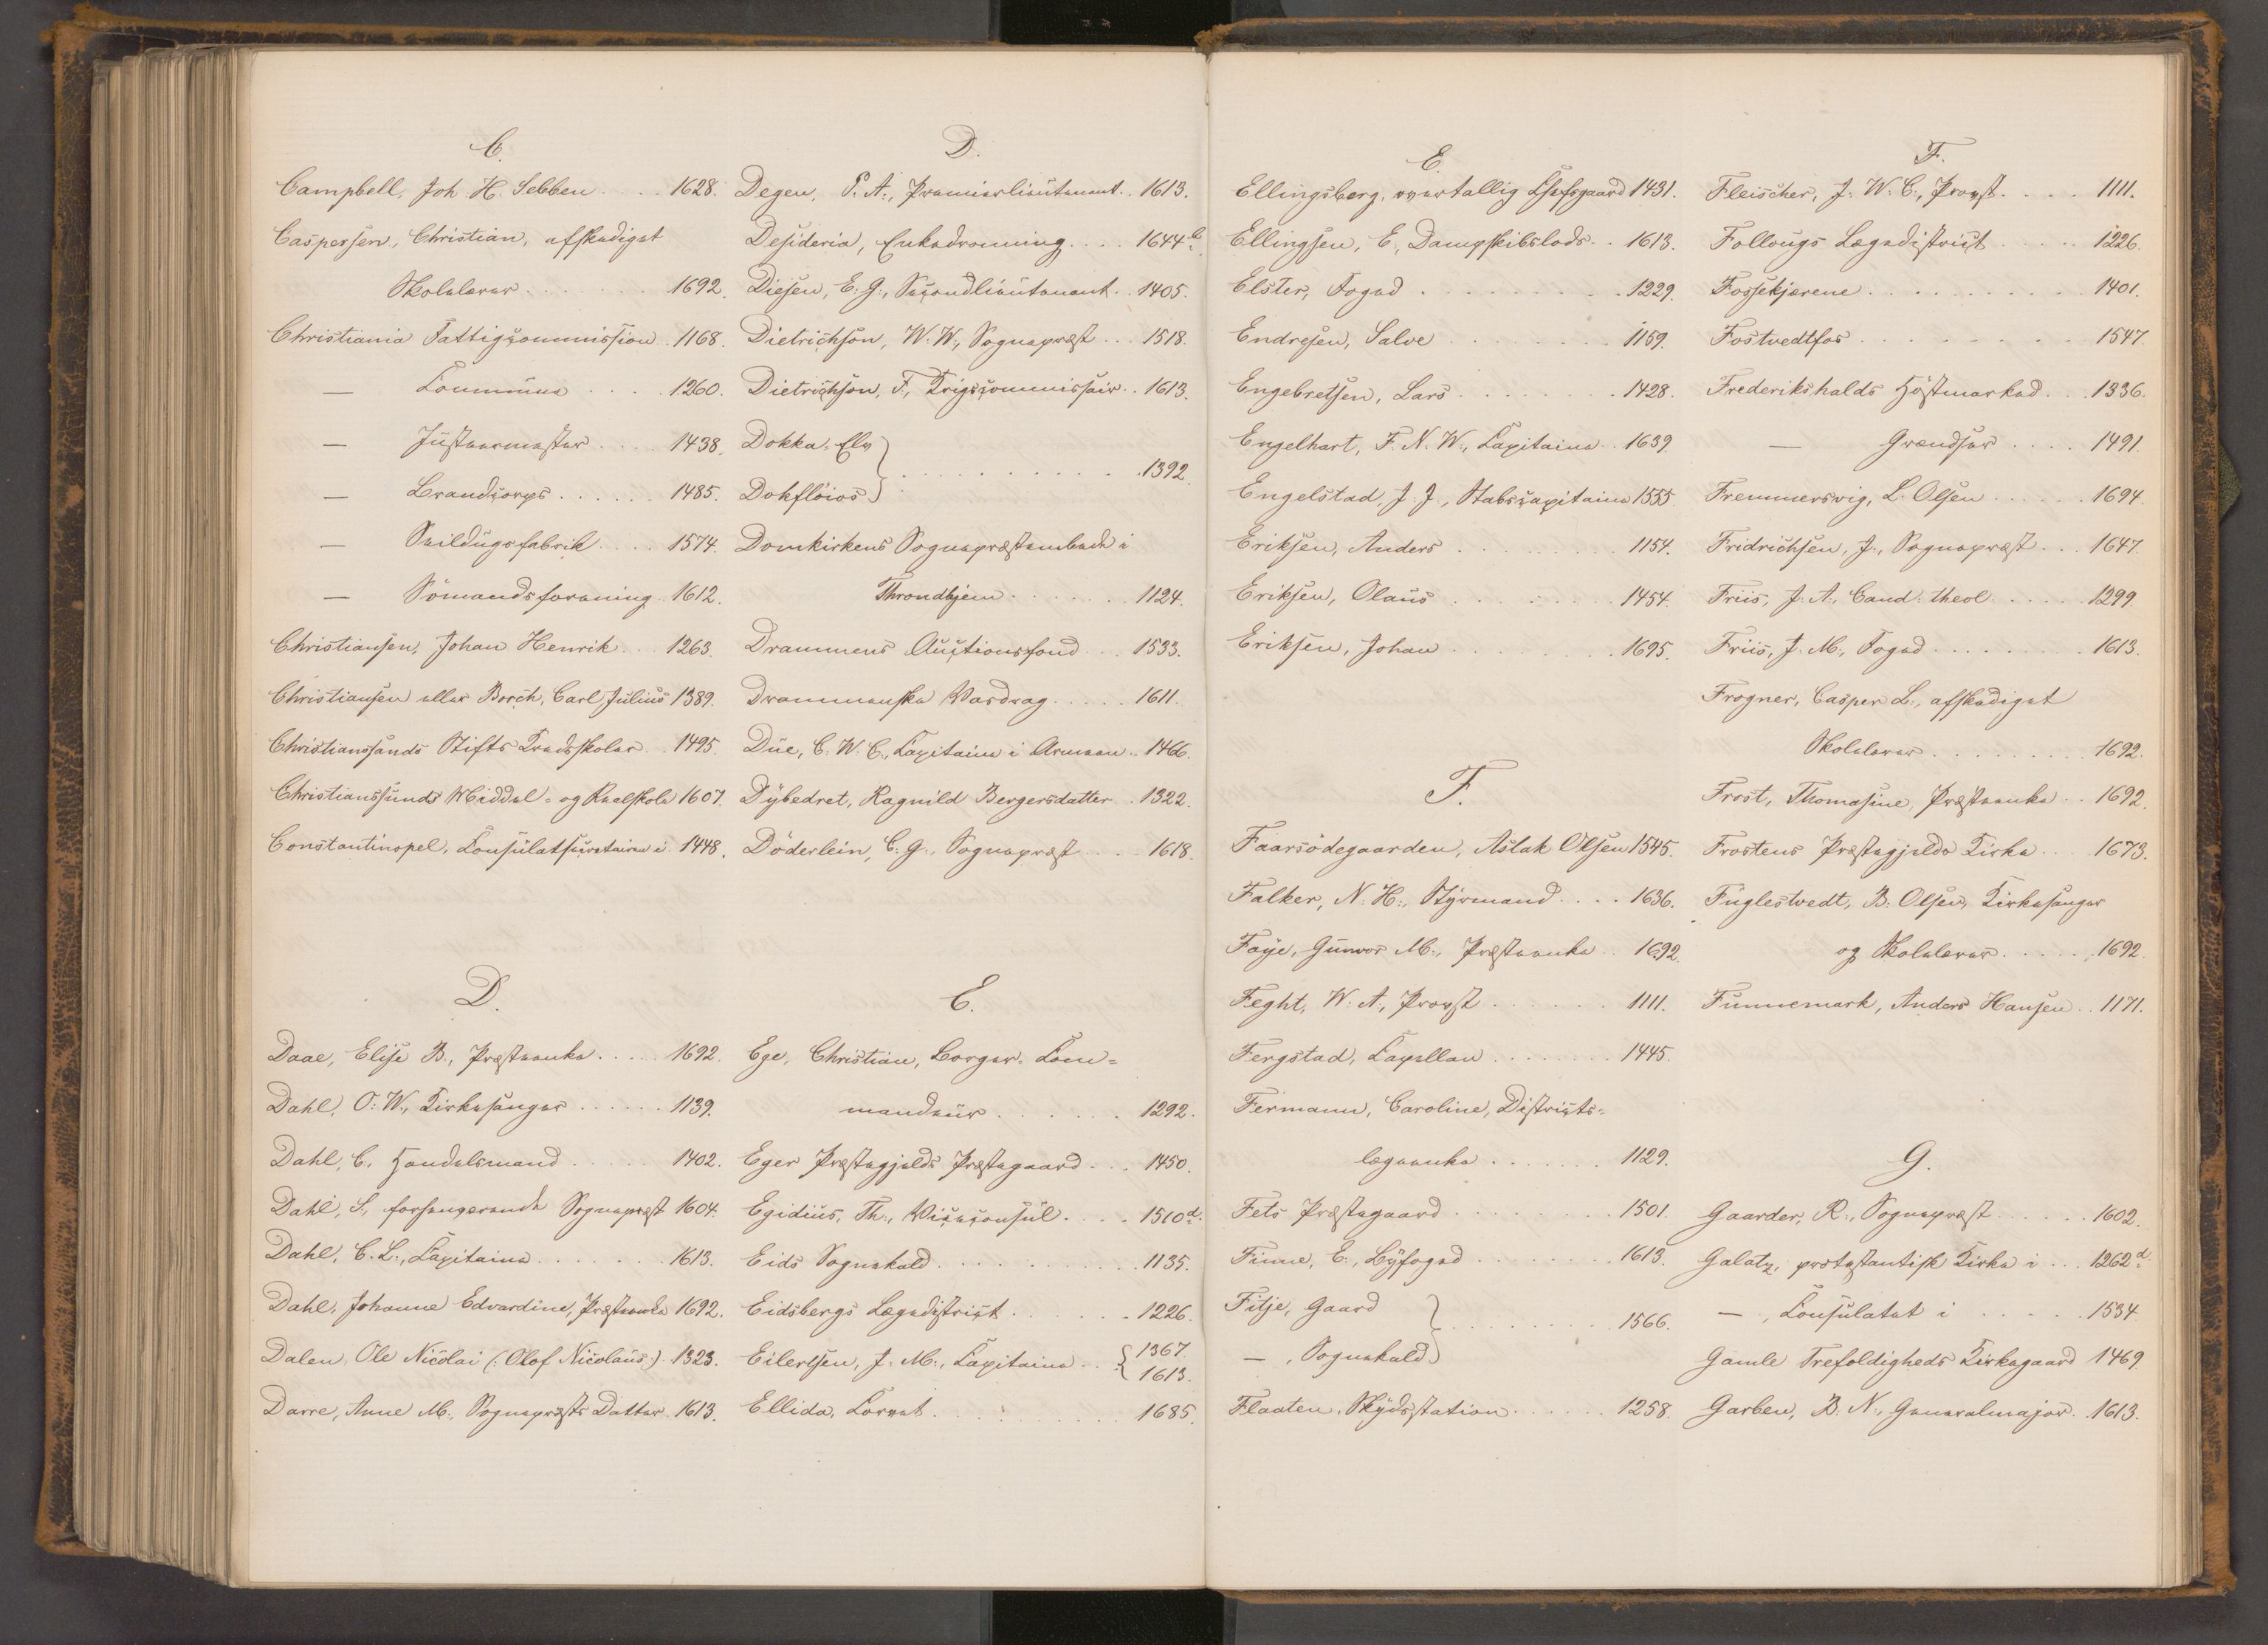 C.
Campbell, Joh. H. Sebben . . . . 1628.
Caspersen, Christian, afskediget
Skolelærer . . . . . . 1692.
Christiania Fattigcommission . 1168.
— Commune . . . . 1260.
— Justeermester . . . . 1438.
— Brandcorps . . . . . . 1485.
— Seildugsfabrik . . . . 1574.
— Sömandsforening . 1612.
Christiansen, Johan Henrik . . 1263.
Christiansen eller Borch, Carl Julius 1389.
Christianssands Stifts Fredsskoler . . 1495.
Christianssunds Middel- og Realskole 1607.
Constantinopel, Consulatsecretairen i . 1448.
D.
Daae, Elise B., Præsteenke . . . . . 1692.
Dahl, O. W., Kirkesanger . . . . . . 1139.
Dahl, C. Handelsmand . . . . . 1402.
Dahl, S., forhenværende Sognepræst 1604.
Dahl, C. L., Capitaine . . . . . . . 1613.
Dahl, Johanne Edvardine, Præsteenke 1692.
Dalen, Ole Nicolai (: Olof Nicolaus:) . 1323.
Darre, Anne M., Sognepræsts Datter . 1613.
D.
Degen, P. A., Premierlieutenant . . 1613.
Desideria, Enkedronning . . . . 1644 b.
Diesen, E. G., Secondlieutenant . . 1405.
Dietrichson, W. W., Sognepræst . . . 1518.
Dietrichson, F., Krigscommissair . . 1613.
Dokka, Elv
Dokflöios } . . . . . . . . . . 1392.
Domkirkens Sognepræstembede i
Throndhjem . . . . . . 1124.
Drammens Auctionsfond . . . 1533.
Drammenske Vasdrag . . . . . 1611.
Due, C. W. C., Capitaine i Armeen . . 1466.
Dybedret, Ragnild Bergersdatter . . 1322.
Döderlein, C. G., Sognepræst . . . . 1618.
E.
Ege, Christian, Borger-Com-
mandeur . . . . . . . 1292.
Eger Præstegjelds Præstegaard . . . 1450.
Egidius, Th., Vicekonsul . . . . 1510 d.
Eids Sognekald . . . . . . . . . . 1135.
Eidsbergs Lægedistrict . . . . . . . 1226.
Eilertsen, J. M., Capitaine . . { 1367.
1613.
Ellida, Corvet . . . . . . . . . 1685.
E.
Ellingsberg, overtallig Chefsgaard 1431.
Ellingsen, E., Dampskibslods . . 1613.
Elster, Foged . . . . . . . . . 1229.
Endresen, Salve . . . . . . . 1159.
Engebretsen, Lars . . . . . . . 1428.
Engelhart, F. N. W., Capitaine . . 1639.
Engelstad, J. J., Stabscapitaine 1555.
Eriksen, Anders . . . . . . . . 1154.
Eriksen, Olaus . . . . . . . . 1454.
Eriksen, Johan . . . . . . . . 1695.
F.
Faarsödegaarden, Aslak Olsen 1545.
Falker, N. H., Styrmand . . . . 1636.
Faye, Gunvor M., Præsteenke . . 1692.
Feght, W. A., Provst . . . . . . . 1111.
Fergstad, Capellan . . . . . . . 1445.
Fermann, Caroline, Districts-
lægeenke . . . . . . . 1129.
Fets Præstegaard . . . . . . . . 1501.
Finne, E., Byfoged . . . . . . . 1613.
Fitje, Gaard
— , Sognekald } . . . . . . . . . 1566.
Flaaten, Skydsstation . . . . . . 1258.
F.
Fleischer, J. W. C., Provst . . . . . 1111.
Follougs Lægedistrict . . . . . 1226.
Fossekjærene . . . . . . . . . . 1401.
Fostvedtfos . . . . . . . . . 1547.
Frederikshalds Höstmarked . . . 1336.
— Grændser . . . . 1491.
Fremmersvig, L. Olsen . . . . . . 1694.
Fridrichsen, J., Sognepræst . . . 1647.
Friis, J. A., Cand. theol. . . . . . 1299.
Friis, J. M., Foged . . . . . . . . 1613.
Frogner, Casper L., afskediget
Skolelærer . . . . . . . . . 1692.
Frost, Thomasine, Præsteenke . . 1692.
Frostens Præstegjelds Kirke . . . 1673.
Fuglestvedt, B. Olsen, Kirkesanger
og Skolelærer . . . . . . 1692.
Funnemark, Anders Hansen . . 1171.
G.
Gaarder, R., Sognepræst . . . . . . 1602.
Galatz, protestantisk Kirke i . . . 1262 d.
— , Consulatet i . . . . . . 1534.
Gamle Trefoldigheds Kirkegaard 1469.
Garben, B. N., Generalmajor . 1613.